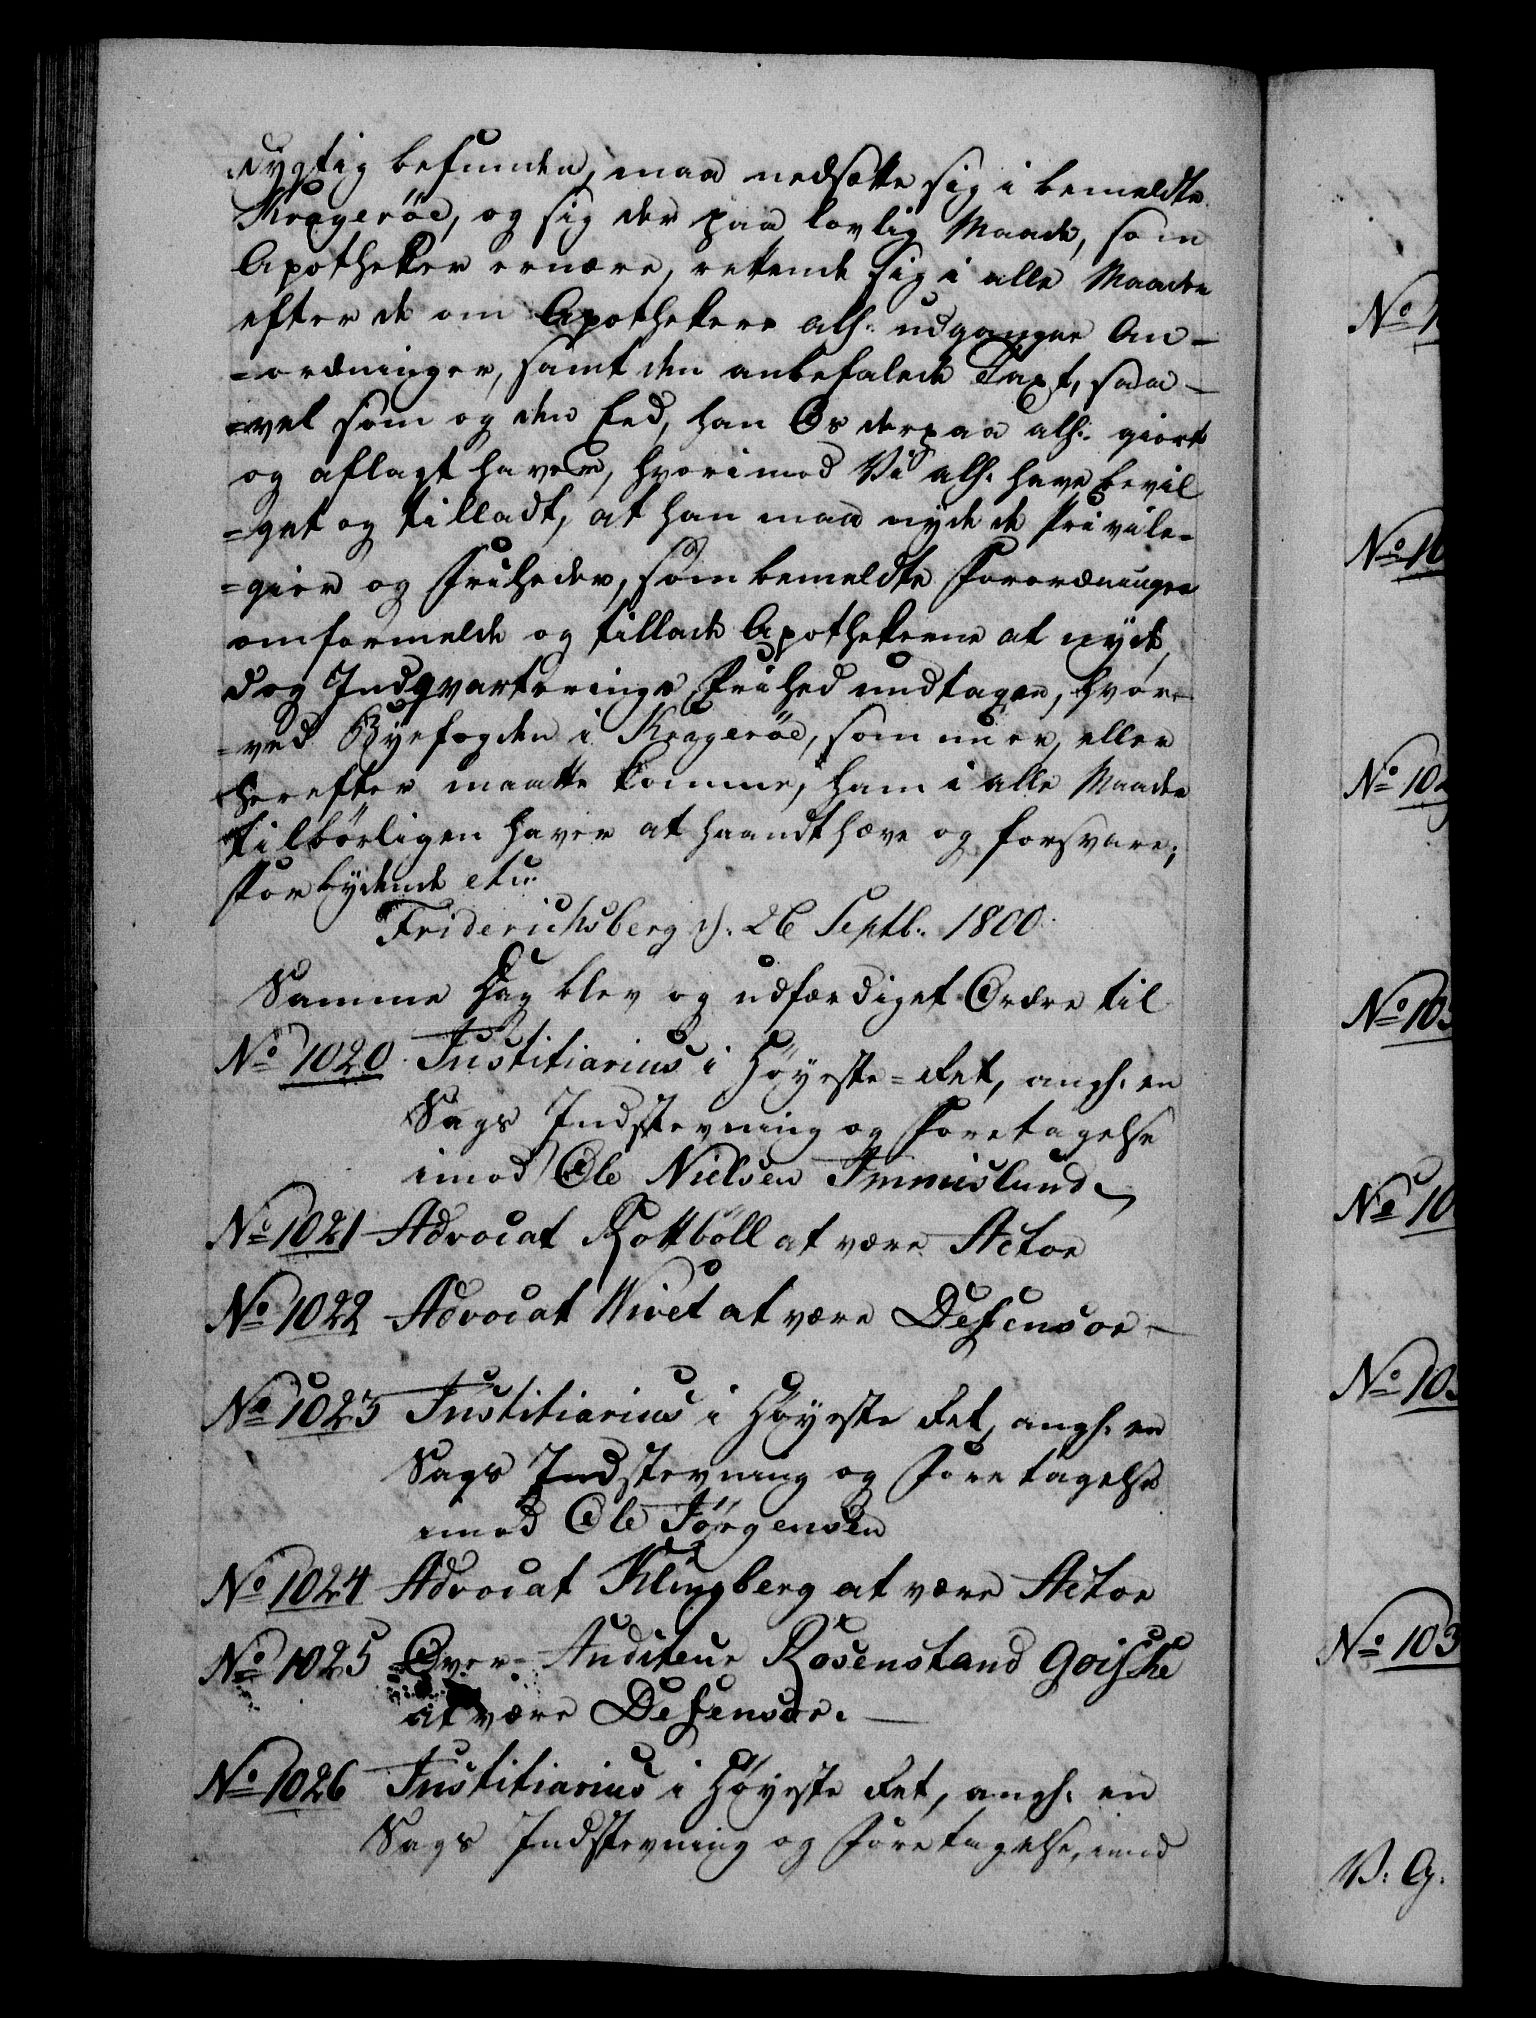 dygtig befunden, maa nedsætte sig i bemeldte
Kragerøe, og sig der paa lovlig Maade, som
Apotheker ernære, rettende sig i alle Maader
efter de om Apothekere alh: udgangne An-
=ordninger, samt den anbefalede Taxt, saa-
=vel som og den Eed, han Os derpaa alh: giort
og aflagt haver, hvorimod Vi alh: have bevil
=get og tilladt, at han maa nyde de Privile=
=gier og Friheder, som bemeldte Forordninger
omformelde og tillade Apothekerne at nyde,
dog Indqvarterings Frihed undtagen, hvor=
=ved Byefogden i Kragerøe, som nu er, eller
herefter maatte komme, ham i alle Maader
tilbørligen haver at haandthæve og forsvare;
Forbydende etc:
Friderichsberg d: 26 Septb: 1800.
Samme Dag blev og udfærdiget Ordre til
No 1020 Justitiarius i Høyeste=Ret, angh: en
Sags Indstevning og Foretagelse
imod Ole Nielsen Immislund
No 1021 Advocat Rottbøll at være Actor
No 1022 Advocat Wivet at være Defensor-
No 1023 Justitiarius i Høyeste Ret, angh: en
Sags Indstevning og Foretagelse
imod Ole Jørgensen
No 1024 Advocat Klingberg at være Actor
No 1025 Over-Auditeur Rosenstand Goiske
at være Defensor.
No 1026 Justitiarius i Høyeste Ret, angh: en
Sags Indstevning og Foretagelse, imod
No 10
No 10
No 103
No 10
No 103
No 103
V: G.